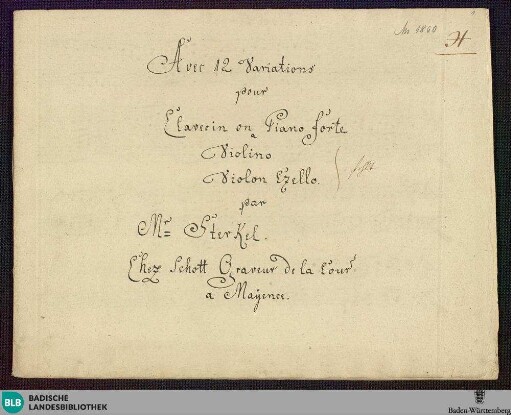 Avec 12 Variations
pour
Clavecin ou Piano forte
Violino
Violon Czello.
par
Mr Sterkel.
Chez Schott Graveur de la Cour
a Mayence.
BLB BADISCHE
LANDESBIBLIOTHEK
Baden-Württemberg